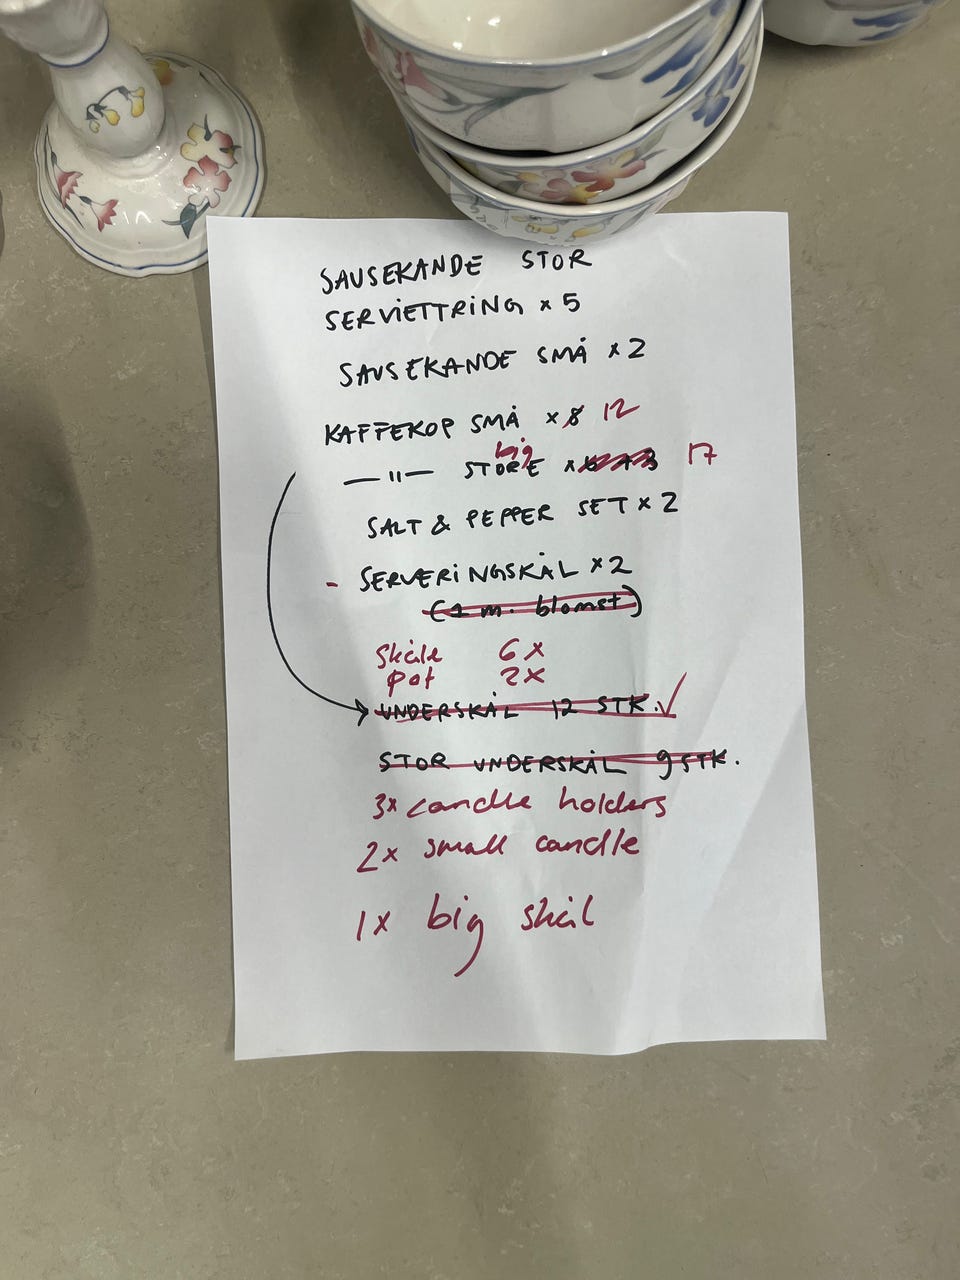 SAUSEKANDE STOR
SERVIETTRING x 5
SAUSEKANDE SMÅ x 2
KAFFEKOP SMÅ x 8 12
big
—"— STORE x 17
SALT & PEPPER SET x 2
- SERVERINGSKÅL x 2
(1 m. blomst)
Skåle 6x
pot 2x
UNDERSKÅL 12 STK. ✓
STOR UNDERSKÅL 9 STK.
3x candle holders
2x small candle
1x big skål